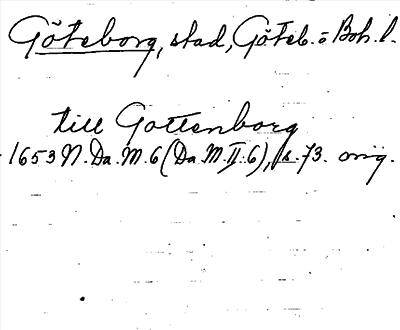 Göteborg, stad, Göteb. o Boh. l.
till Gottenborg
1653 N. Da. M. 6 (Da. M. II. 6), s. 73. orig.